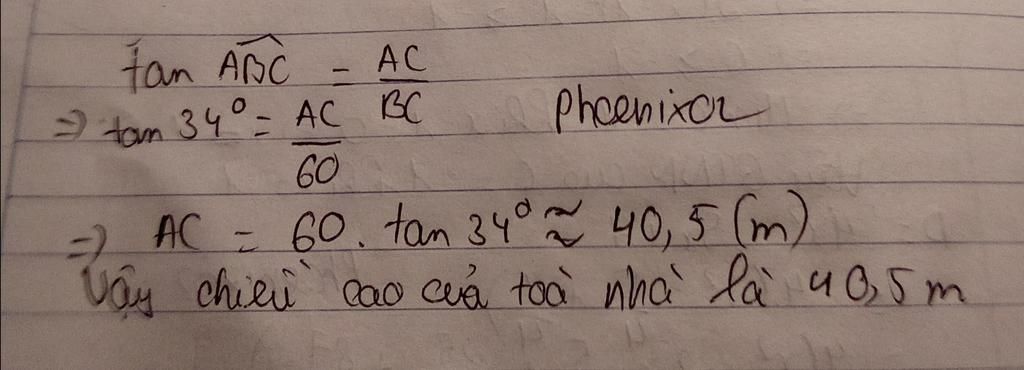 tan ABC = AC/BC
⇒ tan 34° = AC/60
Phoenixa
⇒ AC = 60 . tan 34° ≈ 40,5 (m)
Vậy chiều cao của toà nhà là 40,5 m